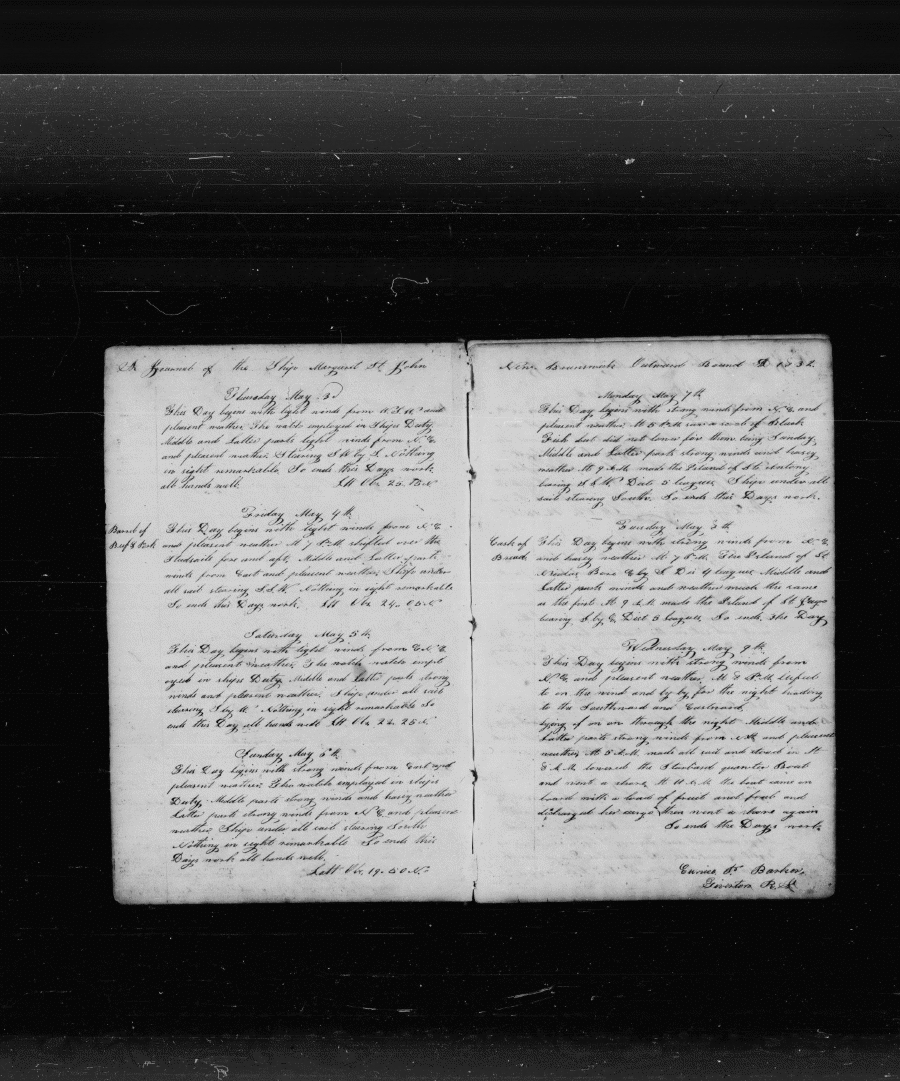 A Journal of the Ship Margaret St. John
Thursday May 3d
This Day begins with light winds from and
pleasent weather. The watch employed in Ships Duty
Middle and Latter parts light winds from N.E.
and pleasent weather. Stearing S.W by S. Nothing
in sight remarkable. So ends this Days work
all hands well. Latt Obs 25..
Friday May 4th
Barrel of
Beef & Pork
This Day begins with light winds from N.E.
and pleasent weather At 7 P.M. shifted over the
Studsails fore and aft, Middle and Latter part
winds from East and pleasent weather. Ship under
all sail stearing S.S.W. Nothing in sight remarkable
So ends this Days work. Latt Obs 24..05 N
Saturday May 5th
This Day begins with light winds from E.N.E
and pleasent weather. The watch employ
oyed in ships Duty. Middle and Latter parts strong
winds and pleasent weather. Ship under all sail
stearing S by W. Nothing in sight remarkable So
ends this Day all hands well Latt Obs 22..25 N
Sunday May 6th
This Day begins with strong winds from East and
pleasent weather. The watch employed in ships
Duty. Middle parts strong winds and hazey weather
Latter parts strong winds from N.E. and pleasent
weather Ship under all sail stearing South
Nothing in sight remarkable So ends this
Days work all hands well.
Latt Obs. 19..50 N.
New Brunswick Outward Bound 1832
Monday May 7th
This Day begins with strong winds from N.E. and
pleasent weather. At 5 P.M. saw a scool of Black
Fish but did not lower for them being Sunday,
Middle and Latter parts strong winds and hazey
weather At 9 A.M. made the Island of St. Antony
bearing Dist 5 leagues. Ship under all
sail stearing South. So ends this Days work.
Tuesday May 8th
Cask of
Bread
This Day begins with strong winds from N.E
and hazey weather At 7 P.M. the Island of St
Nicolas Bore E by S Dis 4 leagues Middle and
Latter parts winds and weather much the same
as the first At 9 A.M. made the Island of St
bearing S by E Dist 5 leagues. So ends the Day
Wednesday May 9th
This Day begins with strong winds from
N.E. and pleasent weather. At 8 P.M. luffed
to on the wind and by by for the night heading
to the Southward and Eastward
lying of on on through the night Middle and
Latter parts strong winds from and pleasent
weather. At 5 A.M. made all sail and stood in At
8 A.M. lowered the Starbord quarter Boat
and went a shore. At 11 A.M. the boat came on
board with a load of fruit and and
discharged her cargo then went a shore again
So ends the Days work
Barker,
Tiverton R.I.